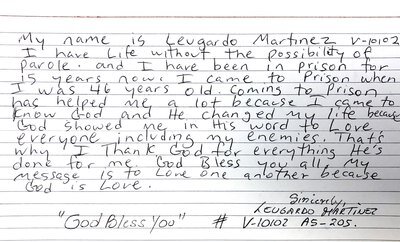 My name is Leugardo Martinez V-10102
I have Life without the possibility of
parole. and I have been in prison for
15 years now. I came to Prison when
I was 46 years old. Coming to Prison
has helped me a lot because I came to
Know God and He changed my life because
God showed me in His word to Love
everyone including my enemies. That's
why I Thank God for everything He's
done for me. God Bless you all. My
message is to Love one another because
God is Love.
Sincerely,
LEUGARDO MARTINEZ
"God Bless You" # V-10102 A5-205.